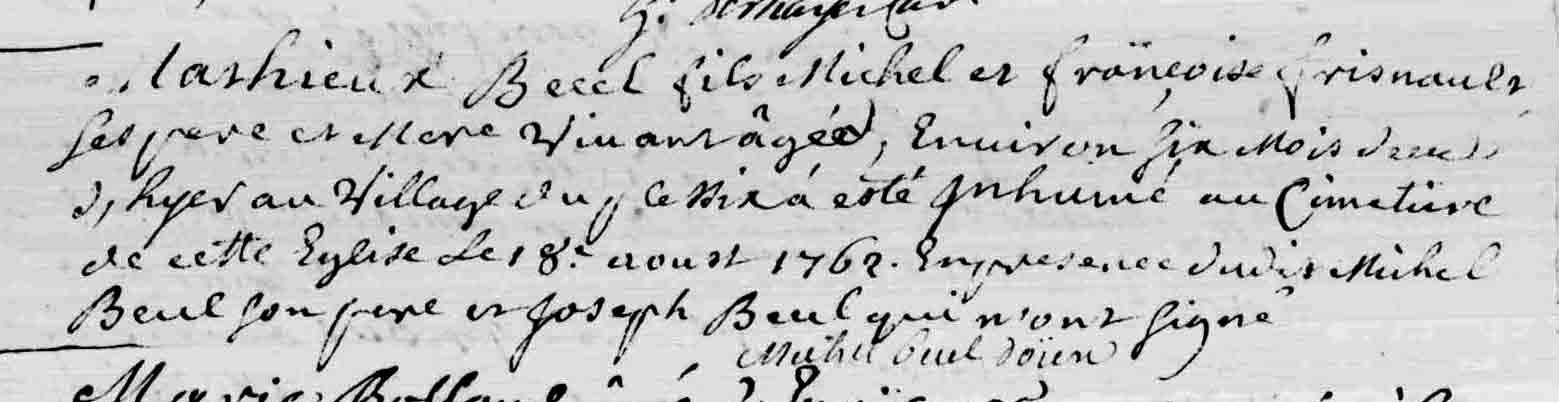 Mathieux Beul fils Michel et françoise frisnault
ses pere et Mere Vivant âgéé, Environ six Mois decedé
d, hyer au Village du plessix á esté Inhumé au Cimetiere
de cette Eglise Le 18e aoust 1762. En presence dudit Michel
Beul son pere et Joseph Beul qui n'ont signé
Michel Beul doüen
Marie